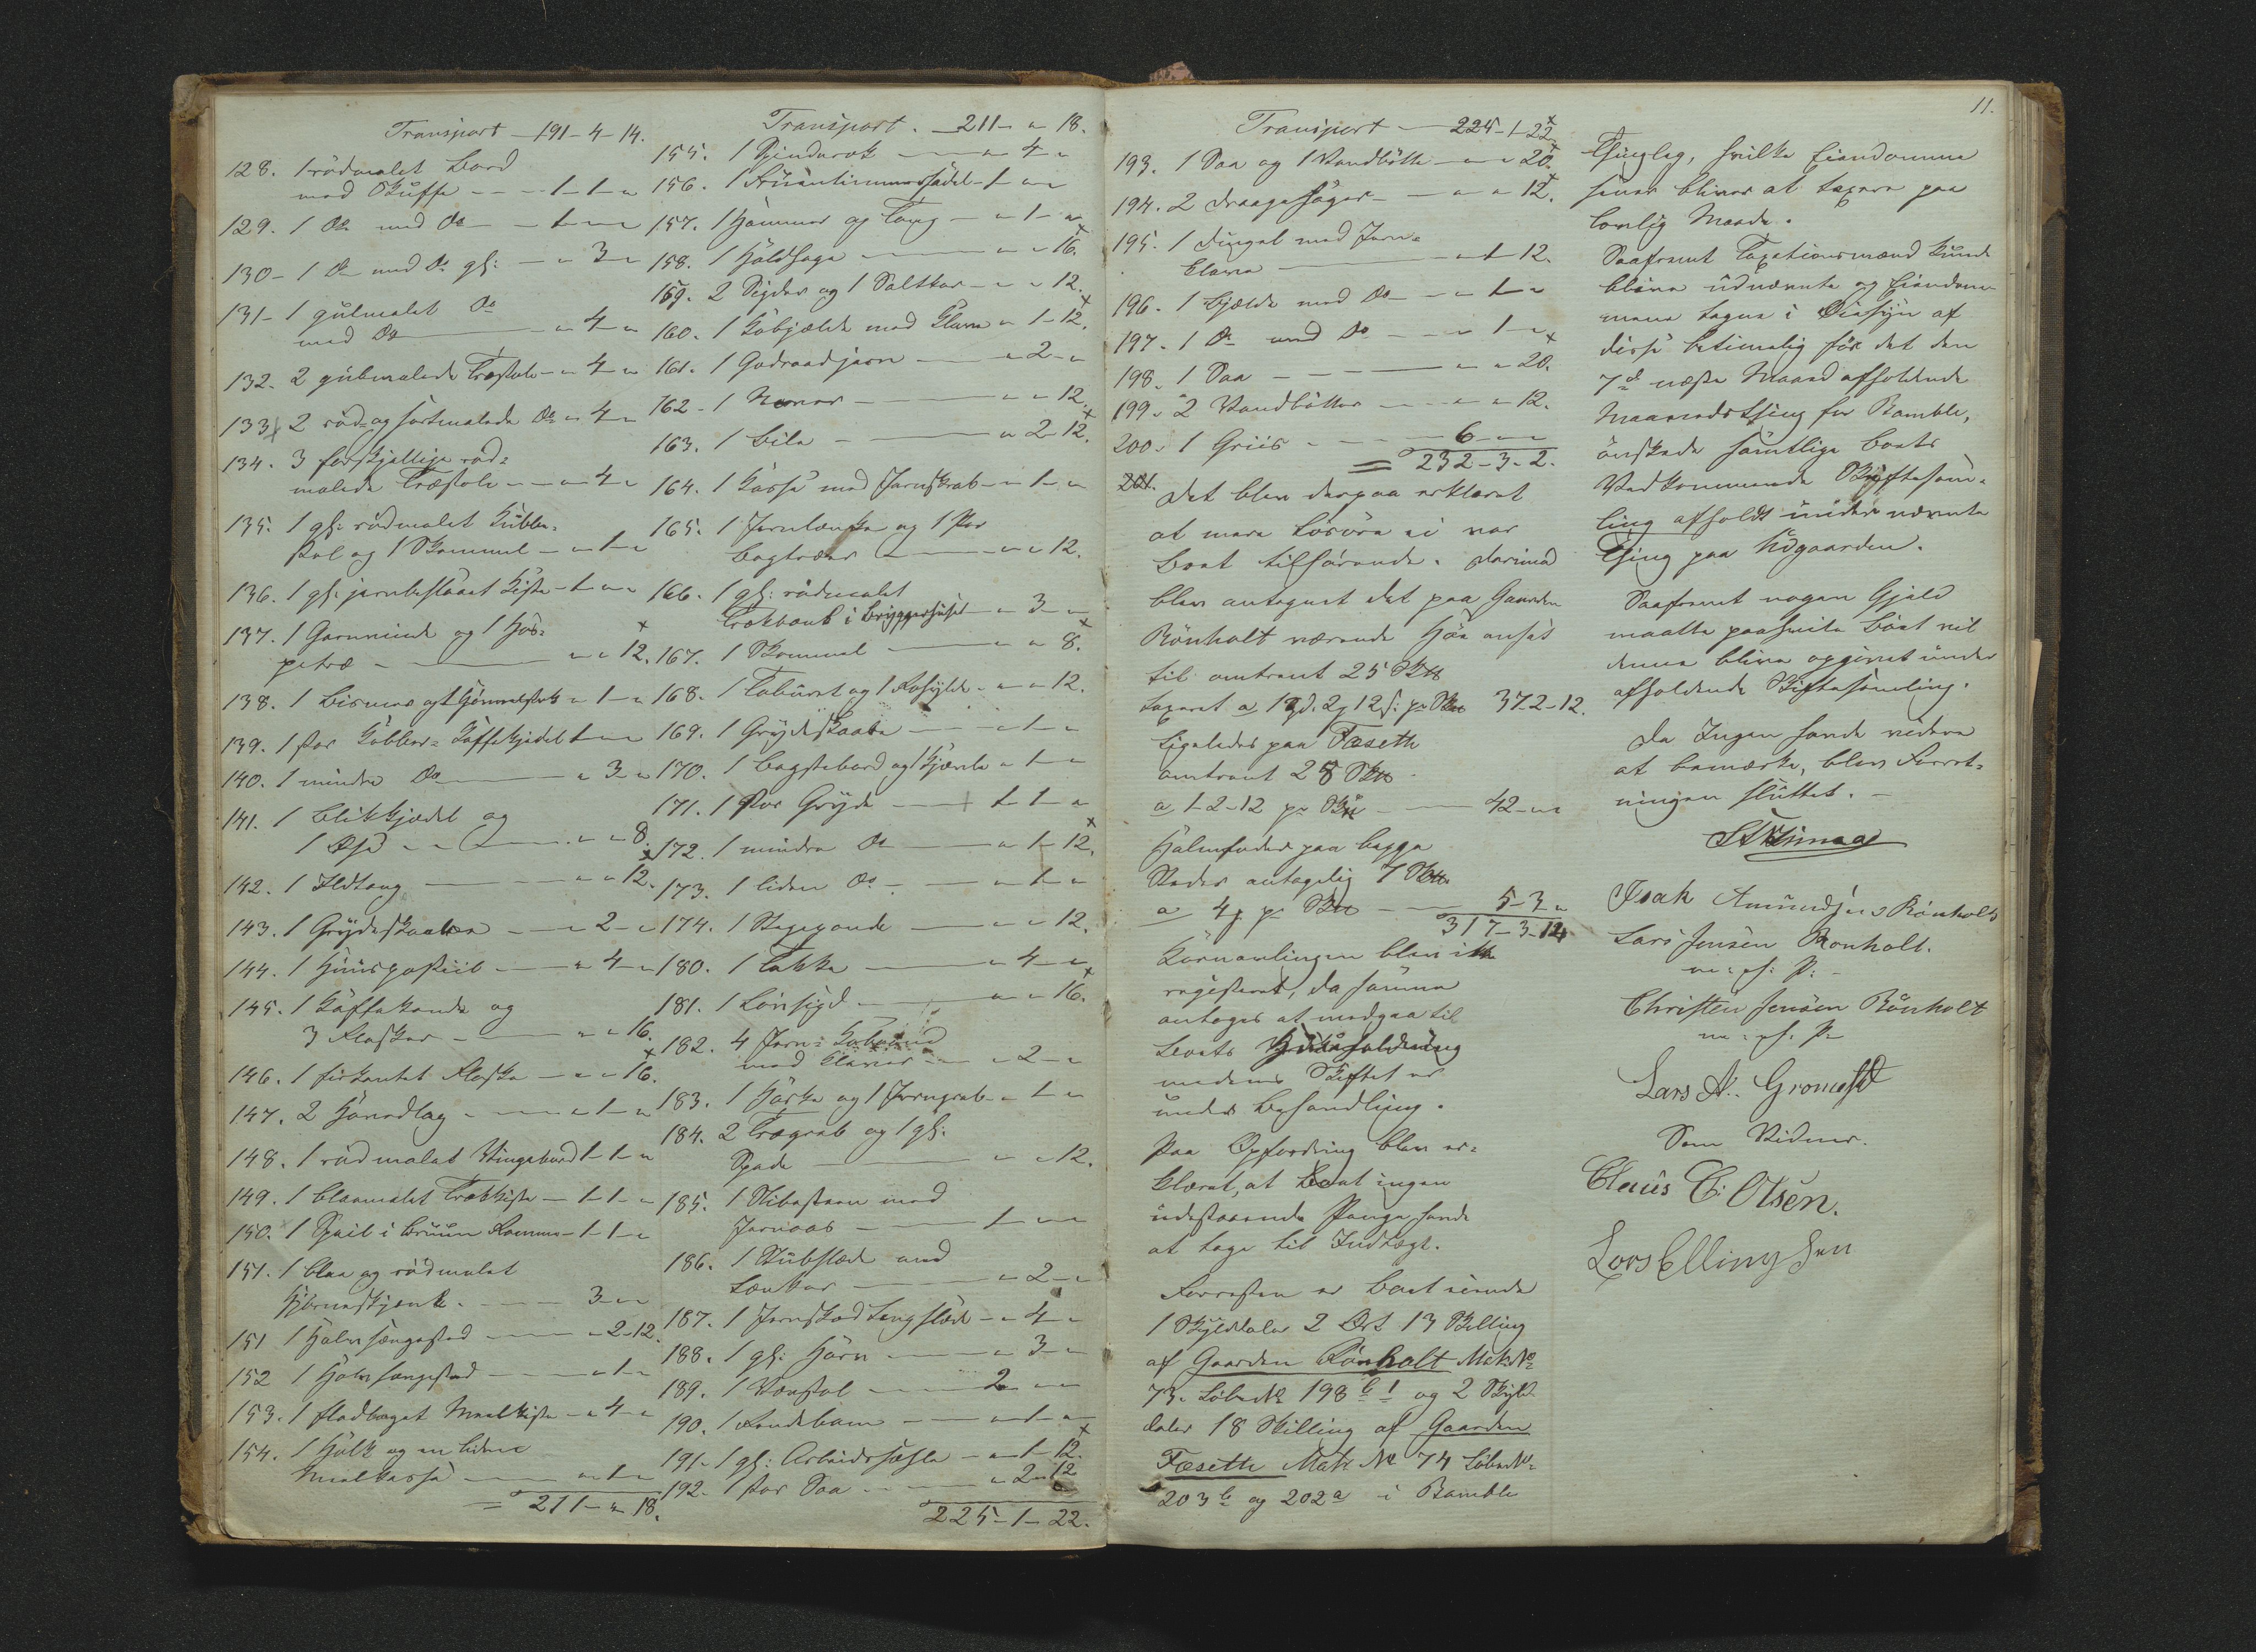 Transport – 191-4-14.
128. 1 rödmalet Bord
med Skuffe - - - 1-1-"
129. 1 do med do - - 1-"-"
130- 1 do med do gl: - " 3-"
131- 1 gulmalet do
med do - " 4-"
132. 2 gulmalede Træstole - " 4-"
133 2 röd- og sortmalede do " 4-"
134. 3 forskjellige röd-
malede Træstole - - " 4-"
135. 1 gl: rödmalet Kubbe-
stol og 1 Skammel - " 1-"
136. 1 gl: jernbeslaaet Kiste - 1-"-"
137. 1 Garnvinde og 1 Hos-
petræ - " " 12.
138. 1 Bismer og 1 " 1-"
139. 1 stor Kobber- Kaffekjedel 1-"-"
140. 1 mindre do " 3-"
141. 1 Blikkjedel og
1 Øse - - " " 8.
142. 1 Ildtang - " " 12.
143. 1 Grydeskaaler - " 2-"
144. 1 Huuspostil - " 4-"
145. 1 Kaffekande og
3 Flasker - " " 16.
146. 1 firkantet Flaske - " " 16.
147. 2 - " 1-"
148. 1 rödmalet Vingebord 1-1-"
149. 1 blaamalet Trækkiste - 1-1-"
150. 1 Speil i bruun Ramme - 1-1-"
151. 1 blaa og rödmalet
Hjörneskjænk - 3-"-"
151 1 Halvsængested - " 2-12.
152 1 Halvsængested - " 1-"
153. 1 fladlaaget Meelkiste - " 4-"
154. 1 Holk og en liden
Meelkasse - " 1-"
= 211-"-18.
Transport. - 211-"-18.
155. 1 Spinderok - " 4-"
156. 1 Fruentimmersadel - 1-"-"
157. 1 Hammer og Tang - " 1-"
158. 1 Holdsage - " " 16.
159. 2 Sigder og 1 Saltkar - " " 12.
160. 1 Kobjælde med Klave " 1-12.
161. 1 Goderaadjern - " 2-"
162- 1 Naver - " " 12.
163. 1 Bile - " 2-12.
164. 1 Kasse med Jernskrab - " 1-"
165. 1 Jernlænke og 1 Par
Bagtræer - " " 12.
166. 1 gl: rödmalet
Trækbænk i Bryggerhuset - " 3-"
167. 1 Skammel - " " 8.
168. 1 Taburet og 1 - " " 12.
169. 1 Grydeskaale - " 1-"
170. 1 Bagstebord og 1 Kjævle " 1-"
171. 1 stor Gryde - 1-1-"
172. 1 mindre do - " 1-12.
173. 1 liden do - " 1-"
174. 1 Stegepande - " " 12.
180. 1 Takke - " 4-"
181. 1 Lövsigd - " " 16.
182. 4 Jern- Kobaand
med Klaver - " 2-"
183. 1 Harke og 1 Jerngreb - " 1-"
184. 2 Trægreb og 1 gl:
Spade - " " 12.
185. 1 Slibesteen med
Jernaas - 1-"-"
186. 1 Stubslæde med
Lænker - " 2-"
187. 1 Jernskod Langslæde - " 4-"
188. 1 gl: Harv - " 3-"
189. 1 Vævstol - 2-"-"
190. 1 Rendebom - " 1-"
191- 1 gl: Arbeidssæle - " 1-12.
192. 1 stor Saa - " 2-12
225-1-22.
11.
Transport - 225-1-22.
193. 1 Saa og 1 Vandbötte - " " 20.
194. 2 - " " 12.
195. 1 Dingel med Jern-
klave - " 1-12.
196. 1 Bjælde med do - " 1-"
197. 1 do med do - " 1-"
198. 1 Saa - " " 20.
199. 2 Vandbötter - " " 12.
200. 1 Griis - 6-"-"
= 232-3-2.
201. Det blev derpaa erklæret
at mere Lösöre ei var
Boet tilhörende. Derimod
blev antegnet det paa Gaarden
Rönholt værende Höe ansat
til omtrent 25
taxeret a 1 Spd. 2 12 s: pr 37-2-12.
Ligeledes paa Fæseth
omtrent 28
a 1-2-12 pr - 42-"-"
Halmfoder paa begge
Steder antagelig 7
a 4 pr - 5-3-"
317-3-14
Kornavlingen blev ikke
registeret, da samme
antages at medgaa til
Boets Huusholdning
medens Skiftet er
under Behandling.
Paa Opfordring blev er-
klæret, at Boet ingen
udestaaende Penge havde
at tage til Indtægt.
Forresten er Boet eiende
1 Skylddaler 2 Ort 13 Skilling
af Gaarden Rönholt Matr. No
73. Löbe No 198 b 1 og 2 Skyld-
daler 18 Skilling af Gaarden
Fæseth Matr No 74 Löbe No
203 b og 202 a i Bamble
Thinglag, hvilke Eiendomme
senere bliver at taxere paa
lovlig Maade.
Saafremt Taxationsmænd kunde
blive udnævnte og Eiendom-
mene tagne i Öiesyn af
disse betimelig för det den
7de næste Maaned afholdende
Maanedsthing for Bamble,
önskede samtlige Boets
Vedkommende Skiftesam-
ling afholdt under nævnte
Thing paa Udgaarden.
Saafremt nogen Gjeld
maatte paahvile Boet vil
denne blive opgivet under
afholdende Skiftesamling.
Da Ingen havde videre
at bemærke, blev Forret-
ningen sluttet. -
Isak Amundsen Rönholt
Lars Jensen Rönholt.
m: f: P: -
Christen Jensen Rönholt
m: f: P.
Lars A. Gromstd
Som Vidner.
Claus C. Olsen.
Lars Ellingsen